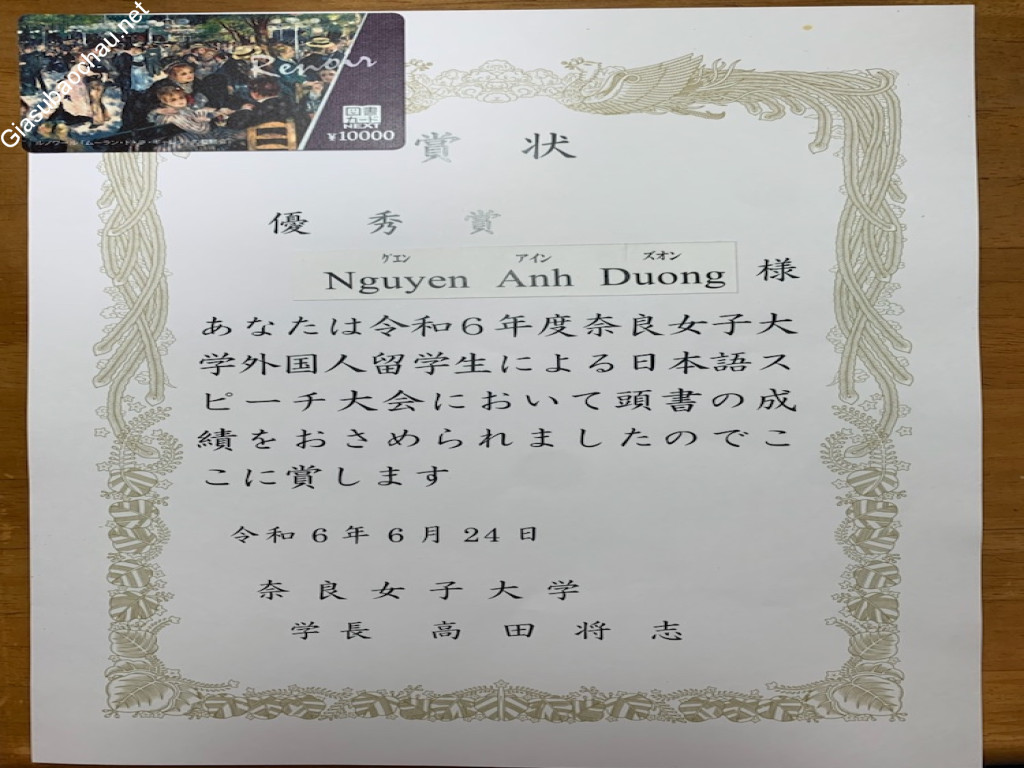 Giasubaochau.net
Renoir
図書
カード
NEXT
¥10000
賞状
優秀賞
グエン アイン ズオン
Nguyen Anh Duong 様
あなたは令和6年度奈良女子大
学外国人留学生による日本語ス
ピーチ大会において頭書の成
績をおさめられましたのでこ
こに賞します
令和6年6月24日
奈良女子大学
学長 高田将志